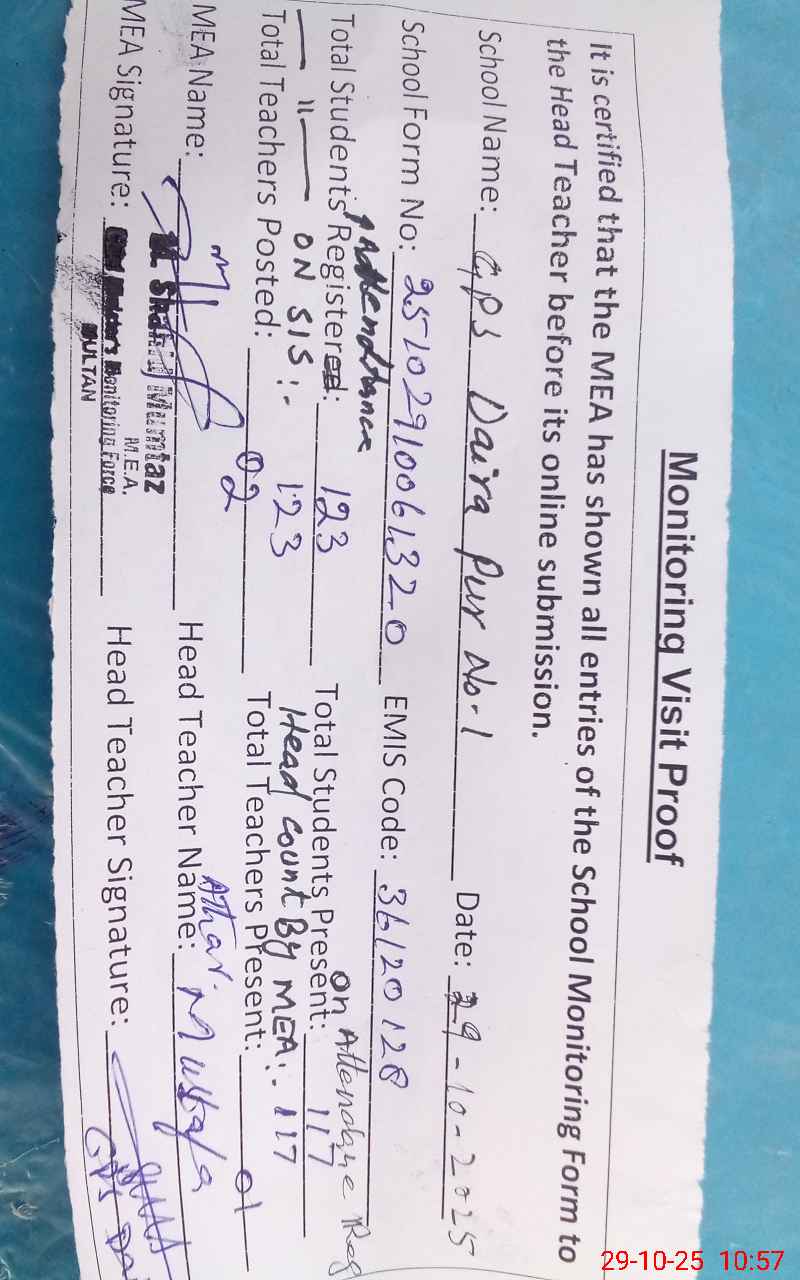 Monitoring Visit Proof
It is certified that the MEA has shown all entries of the School Monitoring Form to
the Head Teacher before its online submission.
School Name: GPS Daira Pur No-1 Date: 29-10-2025
School Form No: 25102910061320 EMIS Code: 36120128
Attendance on Attendance Reg
Total Students Registered: 123 Total Students Present: 117
—"— ON SIS:- 123 Head count By MEA:- 117
Total Teachers Posted: 02 Total Teachers Present: 01
MEA Name: Head Teacher Name: Athar Mustafa
M. Shahid Mumtaz
M.E.A.
MEA Signature: Monitoring Force Head Teacher Signature:
MULTAN
GPS
29-10-25 10:57